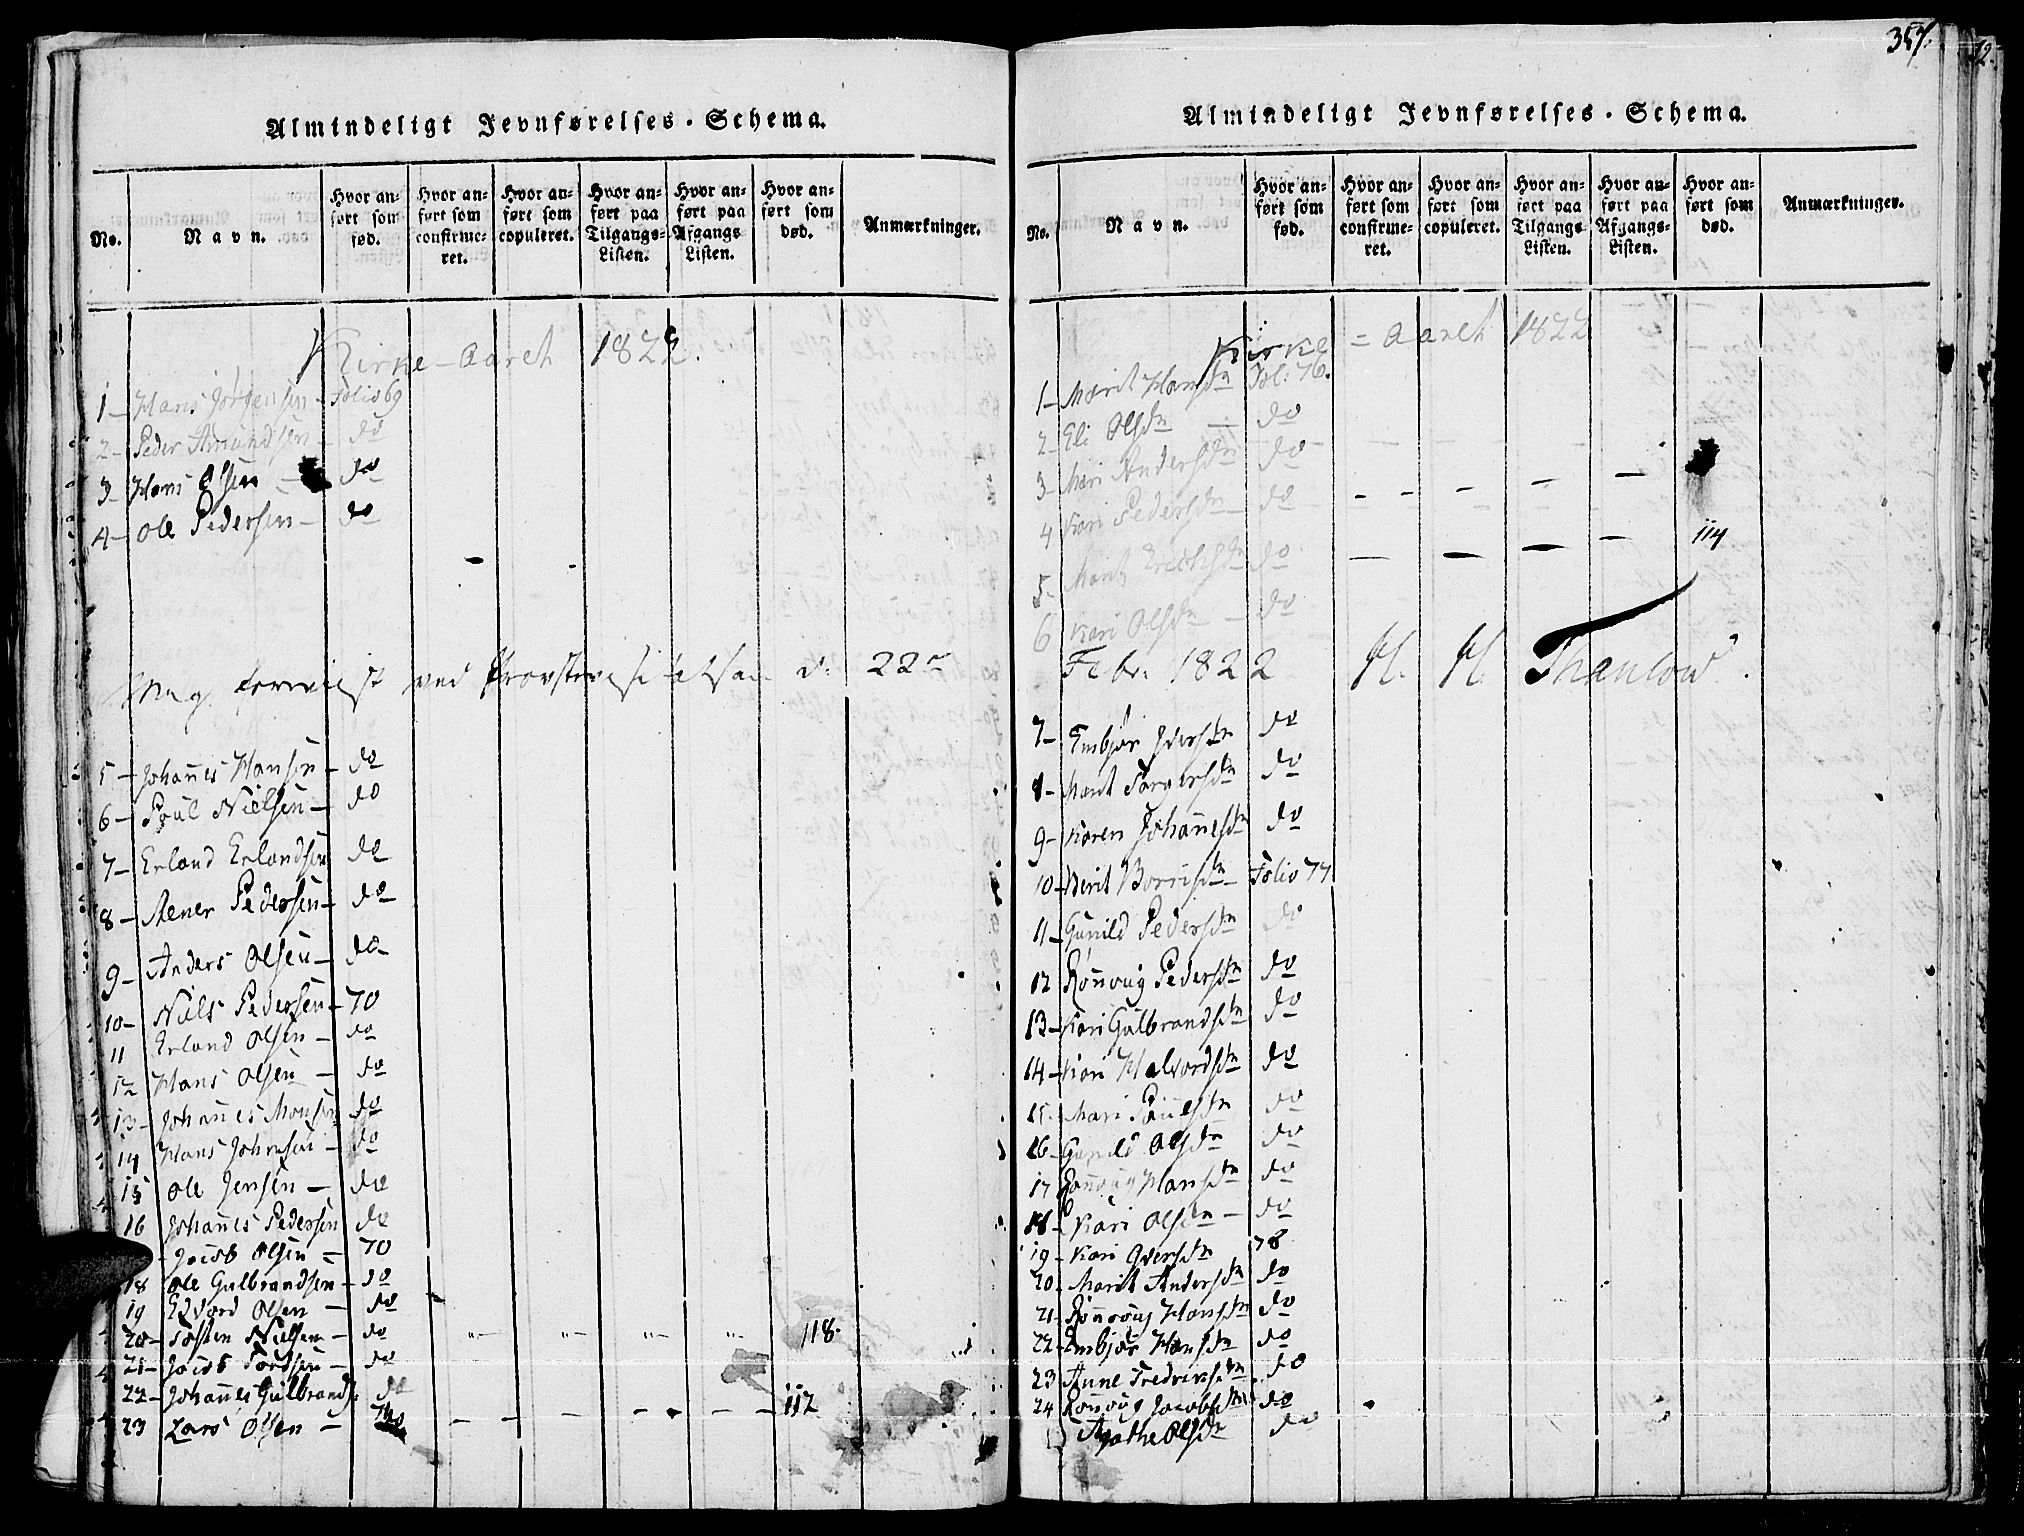 357.
Almindeligt Jevnførelses-Schema.
No. Navn. Hvor anført som fød. Hvor anført som confirmeret. Hvor anført som copuleret. Hvor anført paa Tilgangs-Listen. Hvor anført paa Afgangs Listen. Hvor anført som død. Anmærkninger.
Kirke-Aaret 1822.
1 - Hans Jørgensen - Folio 69
2 - Peder Amundsen - do
3 - Hans Olsen - do
4 - Ole Pedersen - do
5 - Johanes Hansen - do
6 - Poul Nielsen - do
7 - Erland Erlandsen do
8 - Aener Pedersen - do
9 - Anders Olsen - do
10 - Niels Pedersen - 70
11 Erland Olsen - do
12 Hans Olsen - do
13 - Johanes Monsen do
14 Hans Johnsen - do
15 Ole Jensen - do
16 Johanes Pedersen do
Jacob Olsen - 70
18 Ole Gulbrandsen - do
19 Edvard Olsen - do
20 - Tosten Nielsen - do " " " " 118.
21 - Jacob Tordsen - do
22 - Johanes Gulbrands. do
23 Lars Olsen - - - - - - 112
Almindeligt Jevnførelses-Schema.
No. Navn. Hvor anført som fød. Hvor anført som confirmeret. Hvor anført som copuleret. Hvor anført paa Tilgangs Listen. Hvor anført paa Afgangs-Listen. Hvor anført som død. Anmærkninger.
Kirke = Aaret 1822
1 - Marit Hansdn Fol: 76.
2 - Eli Olsdn - do
3 - Mari Andersdn do - - - - -
4 Kari Pedersdn - do
5 - Marit Erichsdn do - - - - 114
6 Kari Olsdn - do
ved Provstevisitatsen d: 22de Febr: 1822 H. H. Thaulow.
7 - Embjør Iversdn do
8 - Marit Torgersdn do
9 - Karen Johanesdn do
10 - Berit Borrisdn - Folio 77
11 - Gunild Pedersdn do
12 Rønnoug Pedersdn do
13 - Kari Gulbrandsdn do
14 - Kari Halvordsdn do
15 - Mari Poulsdn do
16 - Gunild Olsdn do
17 Rønnoug Hansdn do
18 - Kari Olsdn - do
19 - Kari Iversdn 78
20 - Marit Andersdn do
21 - Rønnoug Hansdn do
22 - Embjør Hansdn do
23 Anne Fredriksdn do
24 Rønnoug Jacobsdn do
Agathe Olsdn do